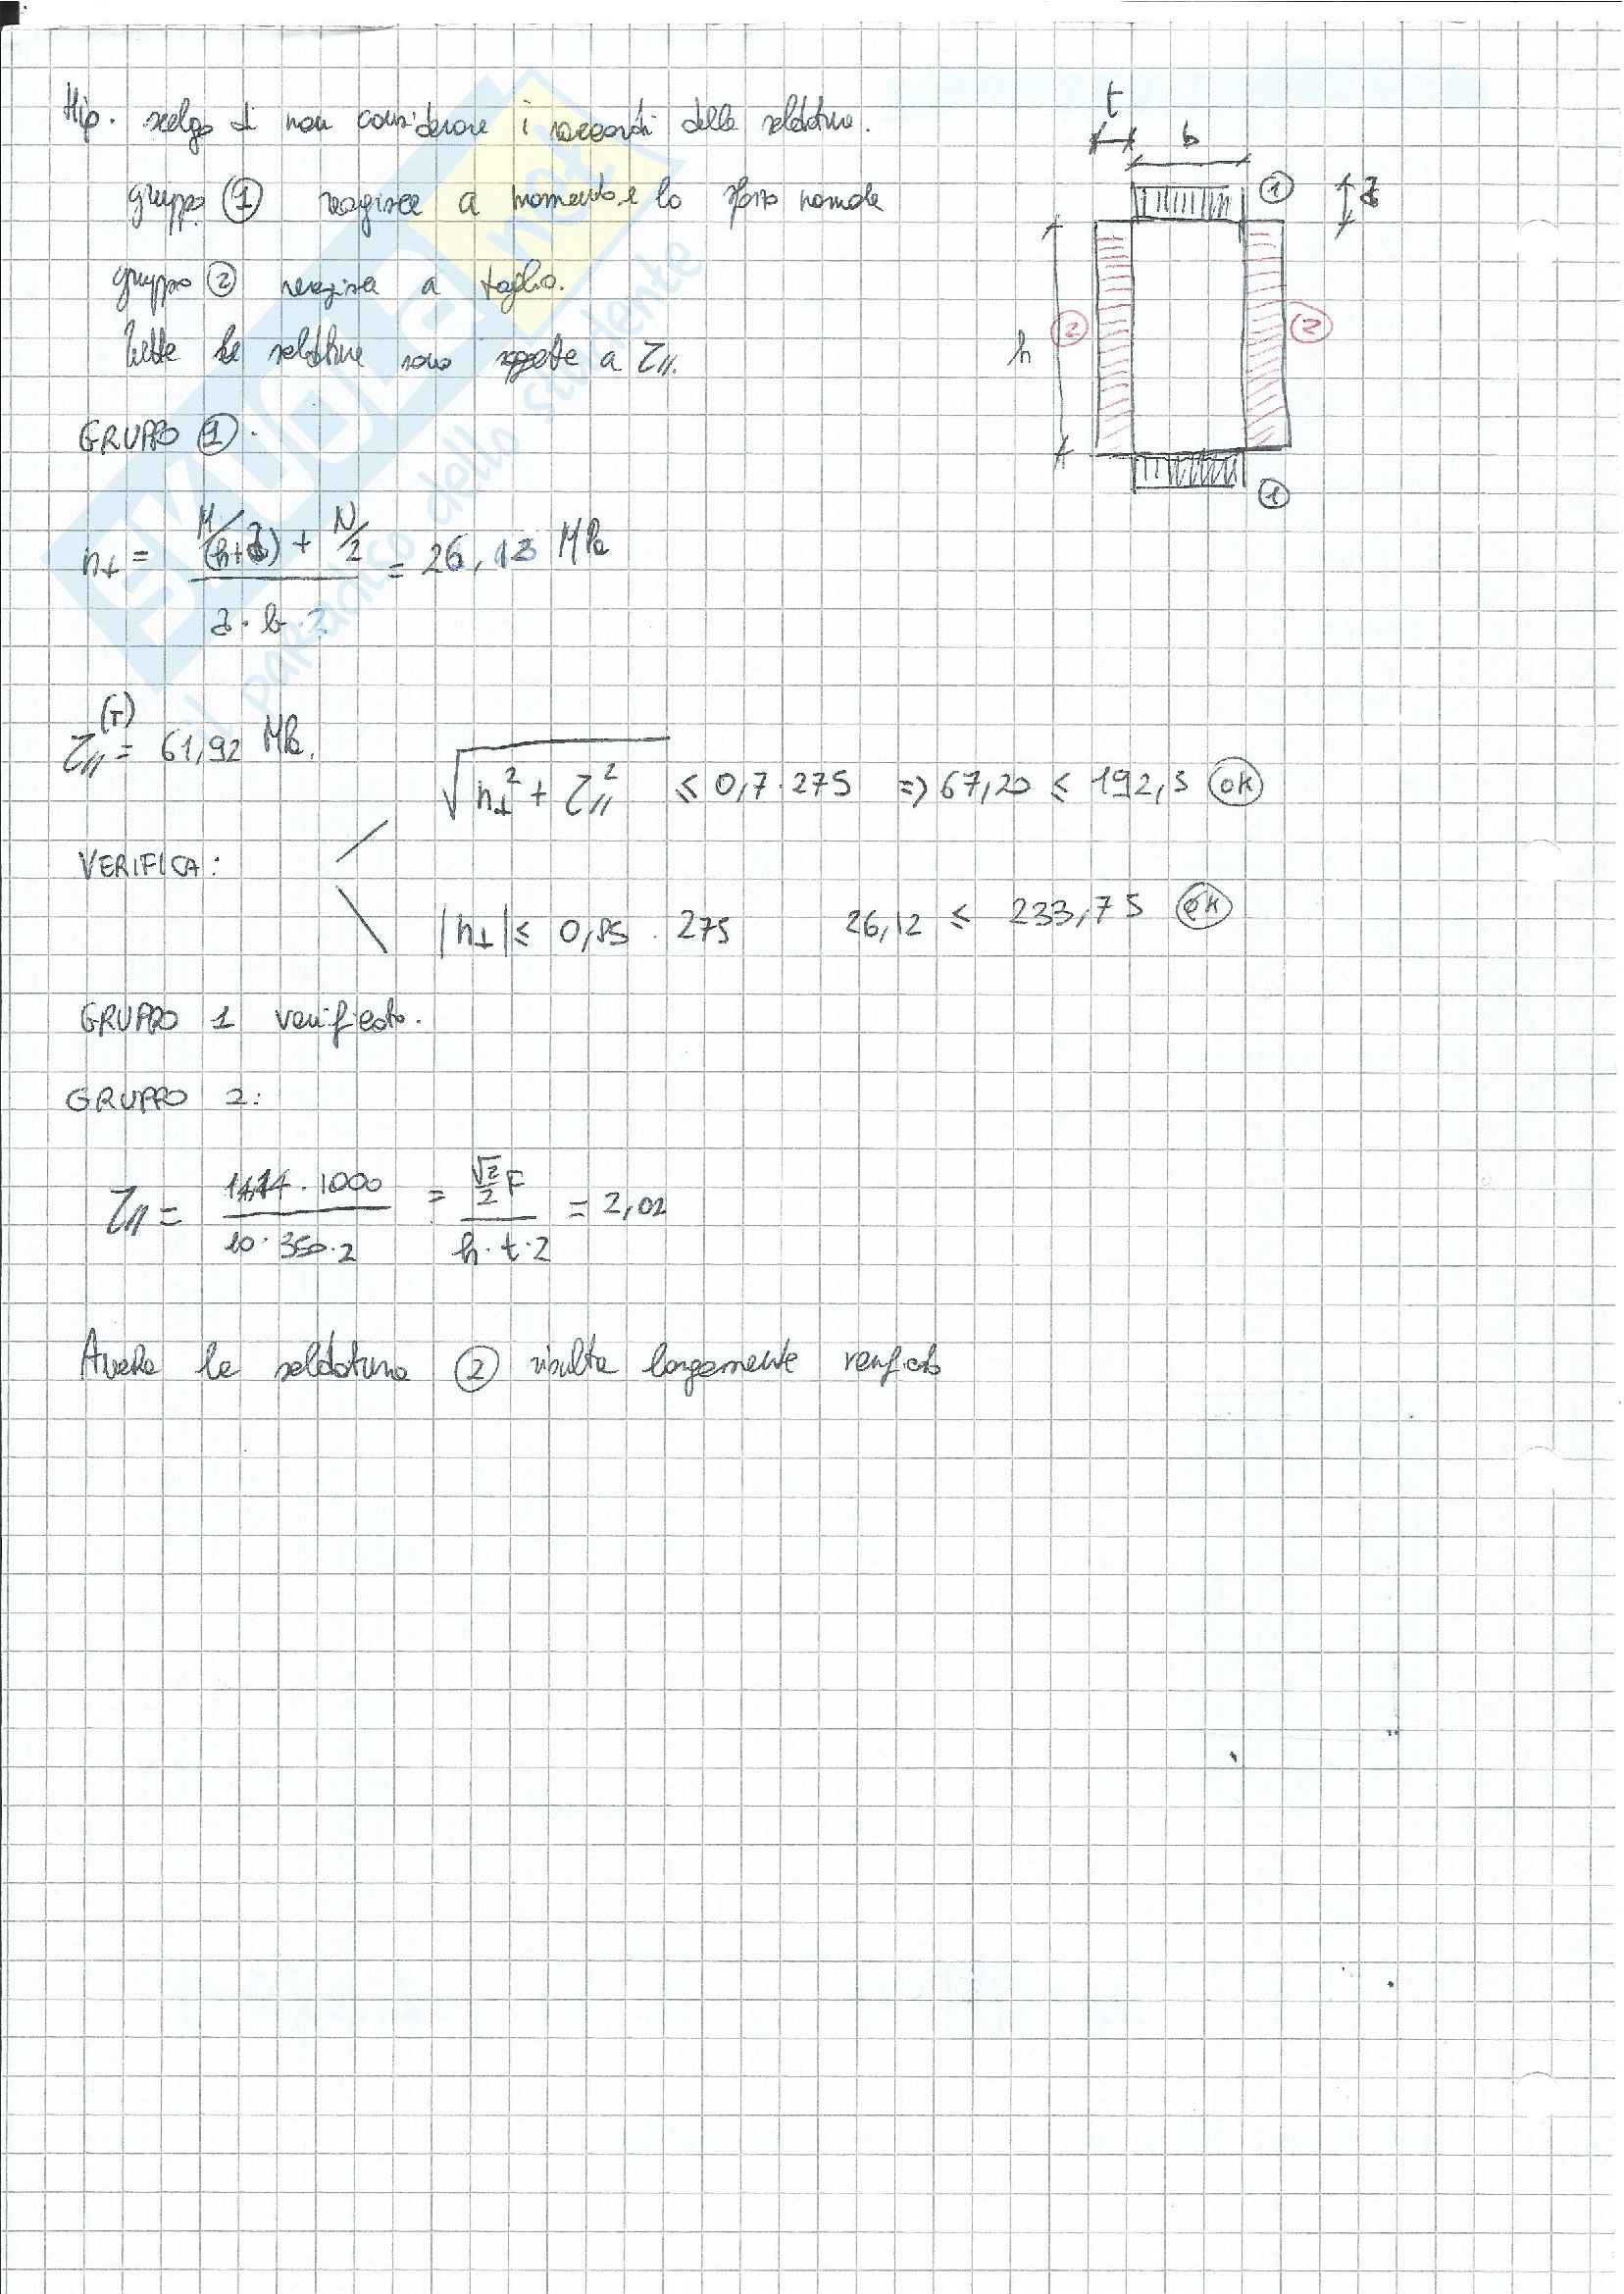 Hip. scelgo di non considerare i raccordi delle saldature.
gruppo ① reagisce a momento e lo sforzo normale
gruppo ② reagisce a taglio.
tutte le saldature sono soggette a τ//.
t
b
①
h
②
②
①
GRUPPO ①.
n⊥ = (M/(h+a) + N/2) / (a · b · 2) = 26,13 MPa
τ//(T) = 61,92 MPa.
√(n⊥² + τ//²) ≤ 0,7 · 275 ⇒ 67,20 ≤ 192,5 ok
VERIFICA:
|n⊥| ≤ 0,85 · 275 26,12 ≤ 233,75 ok
GRUPPO 1 verificato.
GRUPPO 2:
τ// = (14,14 · 1000) / (10 · 350 · 2) = (√2/2 F) / (h · t · 2) = 2,02
Anche la saldatura ② risulta largamente verificata
SKUOLA.net
il paradiso dello studente